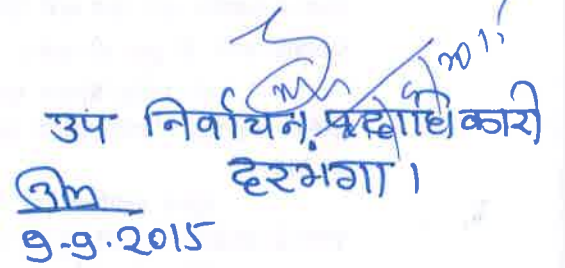 उप निर्वाचन पदाधिकारी
दरभंगा।
9-9-2015